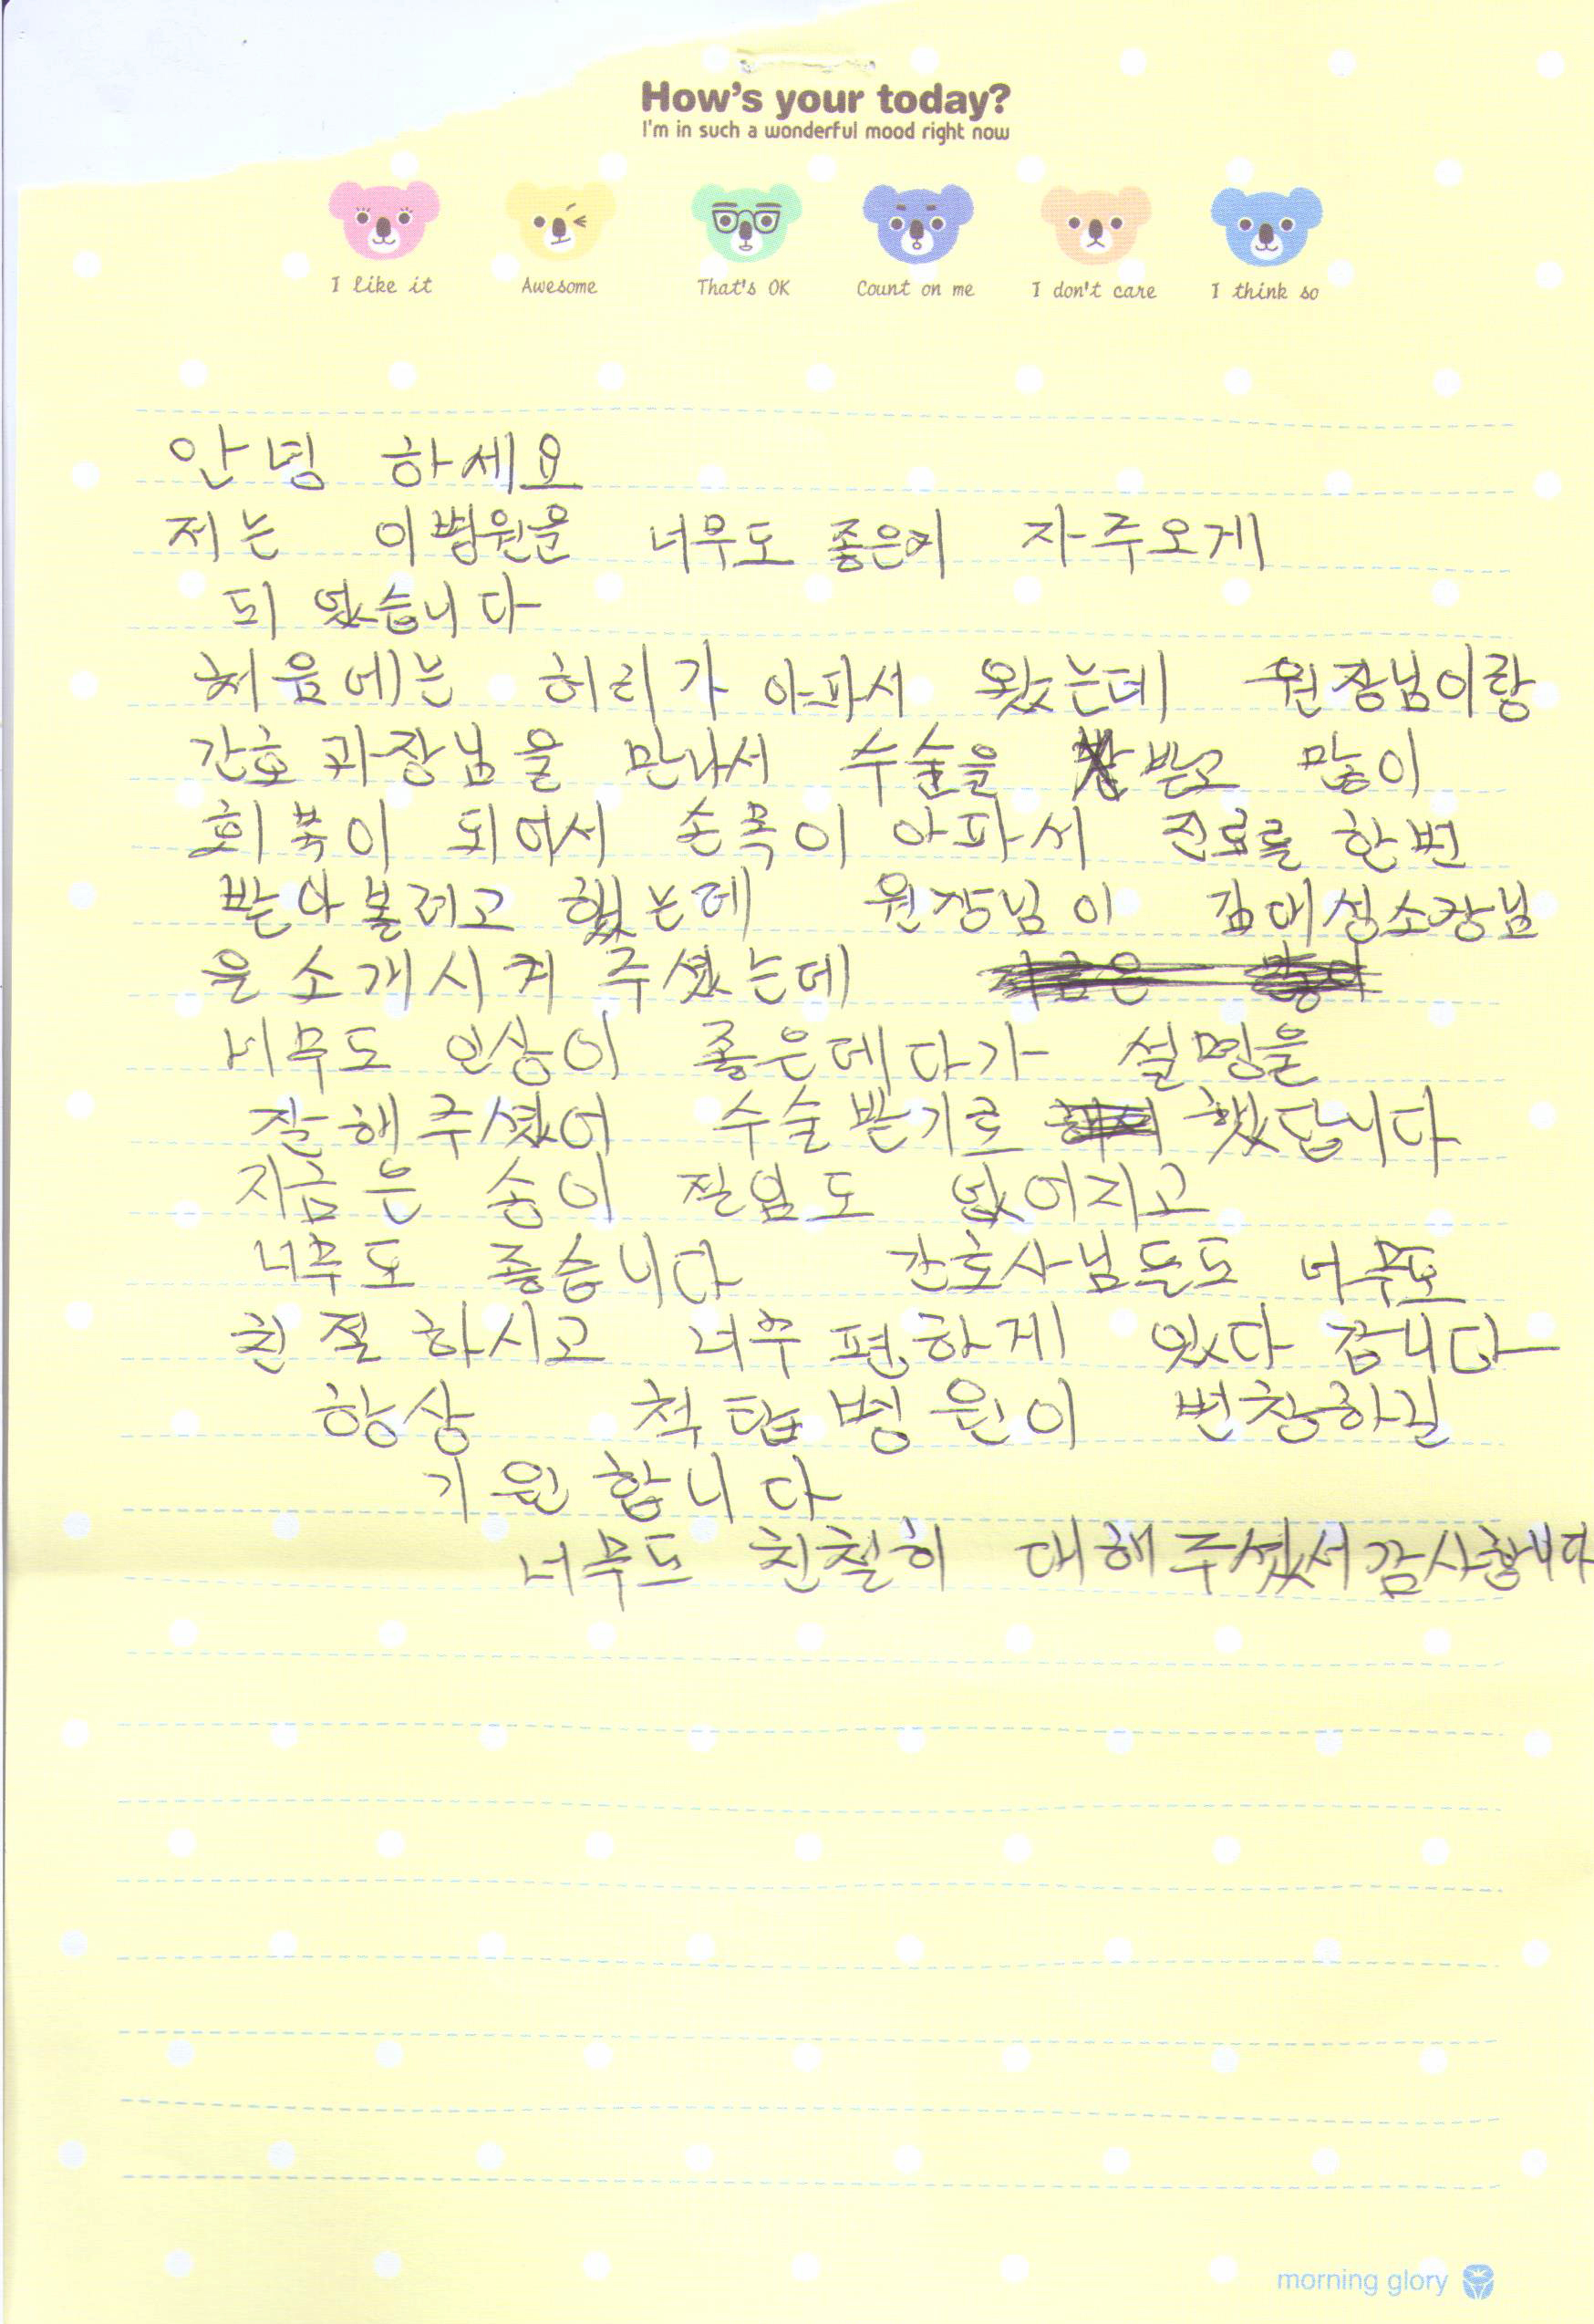 How's your today?
I'm in such a wonderful mood right now
I like it Awesome That's OK Count on me I don't care I think so
안녕 하세요
저는 이병원을 너무도 자주오게
되 었습니다
처음에는 허리가 아파서 왔는데 원장님이랑
간호 과장님을 만나서 수술을 받고 많이
회복이 되어서 손목이 아파서 진료를 한번
받아볼려고 했는데 원장님이 김대성소장님
을 소개시켜 주셨는데
너무도 인상이 좋은데다가 설명을
잘해주셨어 수술받기로 했답니다
지금은 손이 절임도 없어지고
너무도 좋습니다 간호사님든도 너무도
친절하시고 너무 편하게 있다 갑니다
항상 척탑병원이 번창하길
기원합니다
너무도 친철히 대해주셨서감사합니다
morning glory